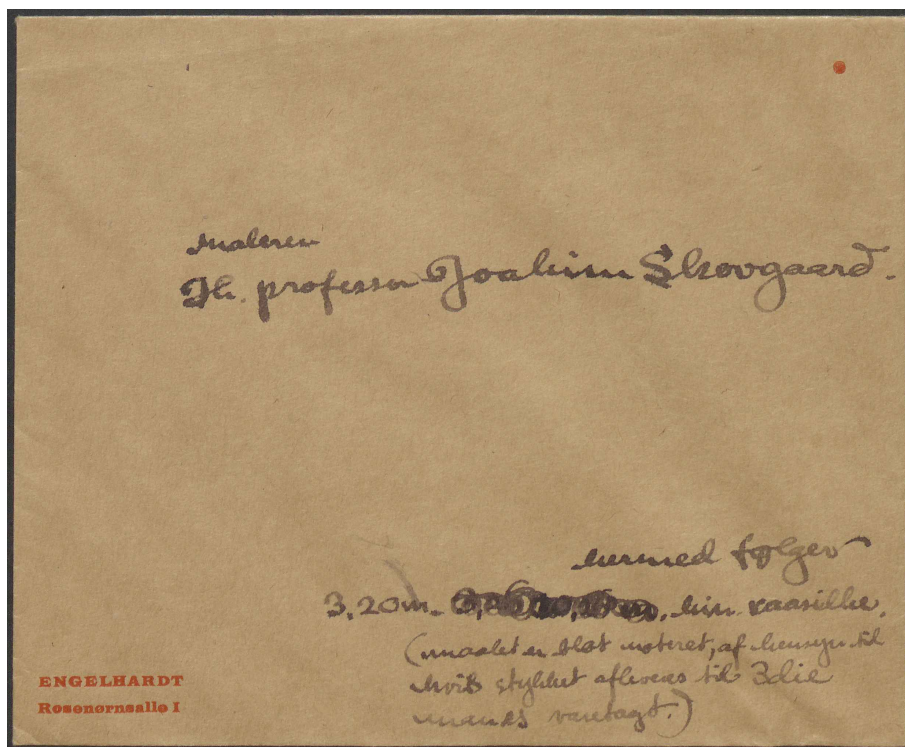 Maleren
Hr. professor Joakim Skovgaard.
hermed følger
3,20 m. kin. raasilke.
(maalet er blot noteret, af hensyn til
hvis stykket afleveres til 3die
mands varetægt.)
ENGELHARDT
Rosenørnsalle I